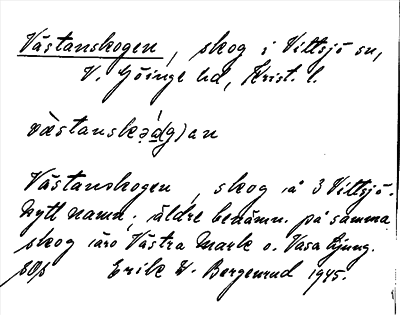 Västanskogen, skog i Vittsjö sn,
V. Göinge hd, Krist. l.
Västanskogen, skog å 3 Vittsjö.
Nytt namn; äldre benämn. på samma
skog äro Västra Mark o. Vasa Ljung.
Erik W. Bergenrud 1945.